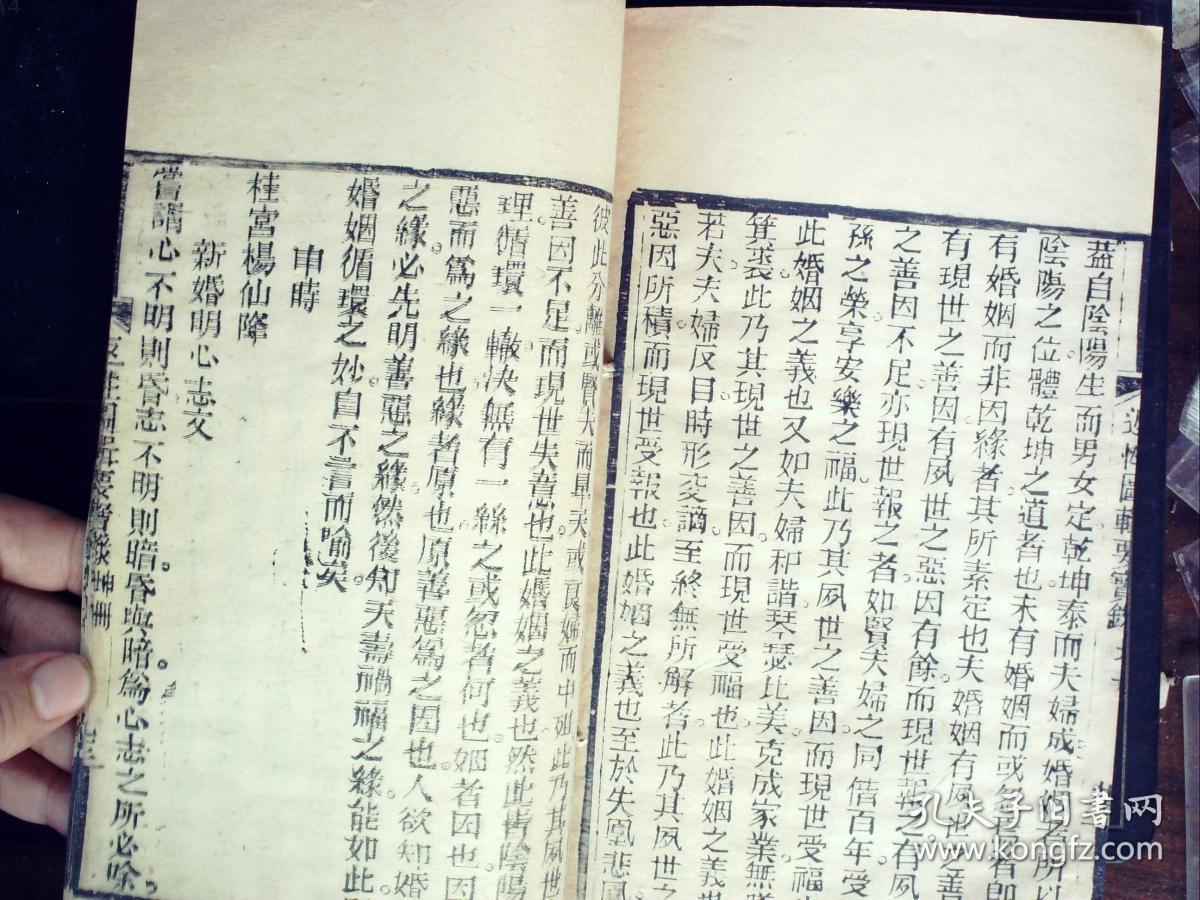 蓋自陰陽生而男女定乾坤泰而夫婦成婚姻之所以
陰陽之位體乾坤之道者也未有婚姻而或
有婚姻而非因緣者其所素定也夫婚姻有夙世之善
有現世之善因有夙世之惡因有餘而現世報之有夙
之善因不足亦現世報之者如賢夫婦之同偕百年受
孫之榮享安樂之福此乃其夙世之善因而現世受福
此婚姻之義也又如夫婦和諧琴瑟比美克成家業無
箕裘此乃其現世之善因而現世受福也此婚姻之義
若夫夫婦反目時形交謫至終無所解者此乃其夙世之
惡因所積而現世受報也此婚姻之義也至於失凰悲
彼此分離或賢夫而具夭或良婦而中乖此乃其夙世
善因不足而現世失意也此婚姻之義也然此皆陰陽
理循環一轍決無有一絲之或忽者何也姻者因也因
惡而為之緣也緣者原也原善惡為之因也人欲知婚
之緣必先明善惡之緣然後知夭壽禍福之緣能如此
婚姻循環之妙自不言而喻矣
申時
桂宮楊仙降
新婚明心志文
嘗謂心不明則昏志不明則暗昏與暗為心志之所必除
孔夫子旧書网
www.kongfz.com